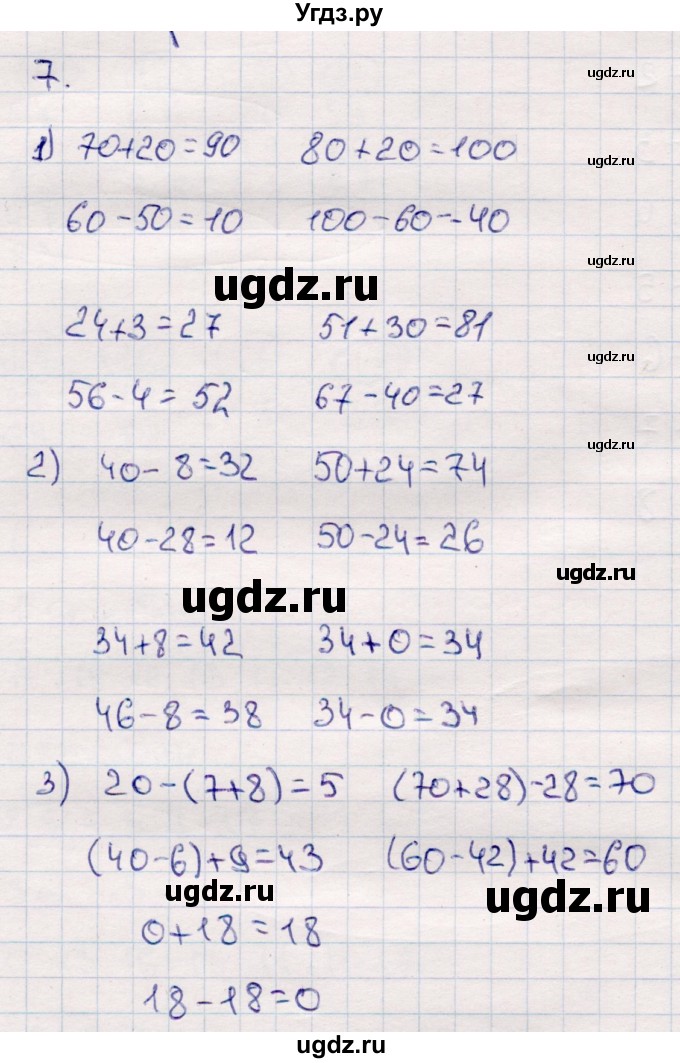 Угдз.ру
7.
ugdz.ru
1) 70+20=90 80+20=100
ugdz.ru
60-50=10 100-60=40
ugdz.ru
ugdz.ru
24+3=27 51+30=81
ugdz.ru
56-4=52 67-40=27
ugdz.ru
2) 40-8=32 50+24=74
40-28=12 50-24=26
ugdz.ru
ugdz.ru
34+8=42 34+0=34
46-8=38 34-0=34
3) 20-(7+8)=5 (70+28)-28=70
(40-6)+9=43 (60-42)+42=60
ugdz.ru
ugdz.ru
0+18=18
18-18=0
©ugdz.ru